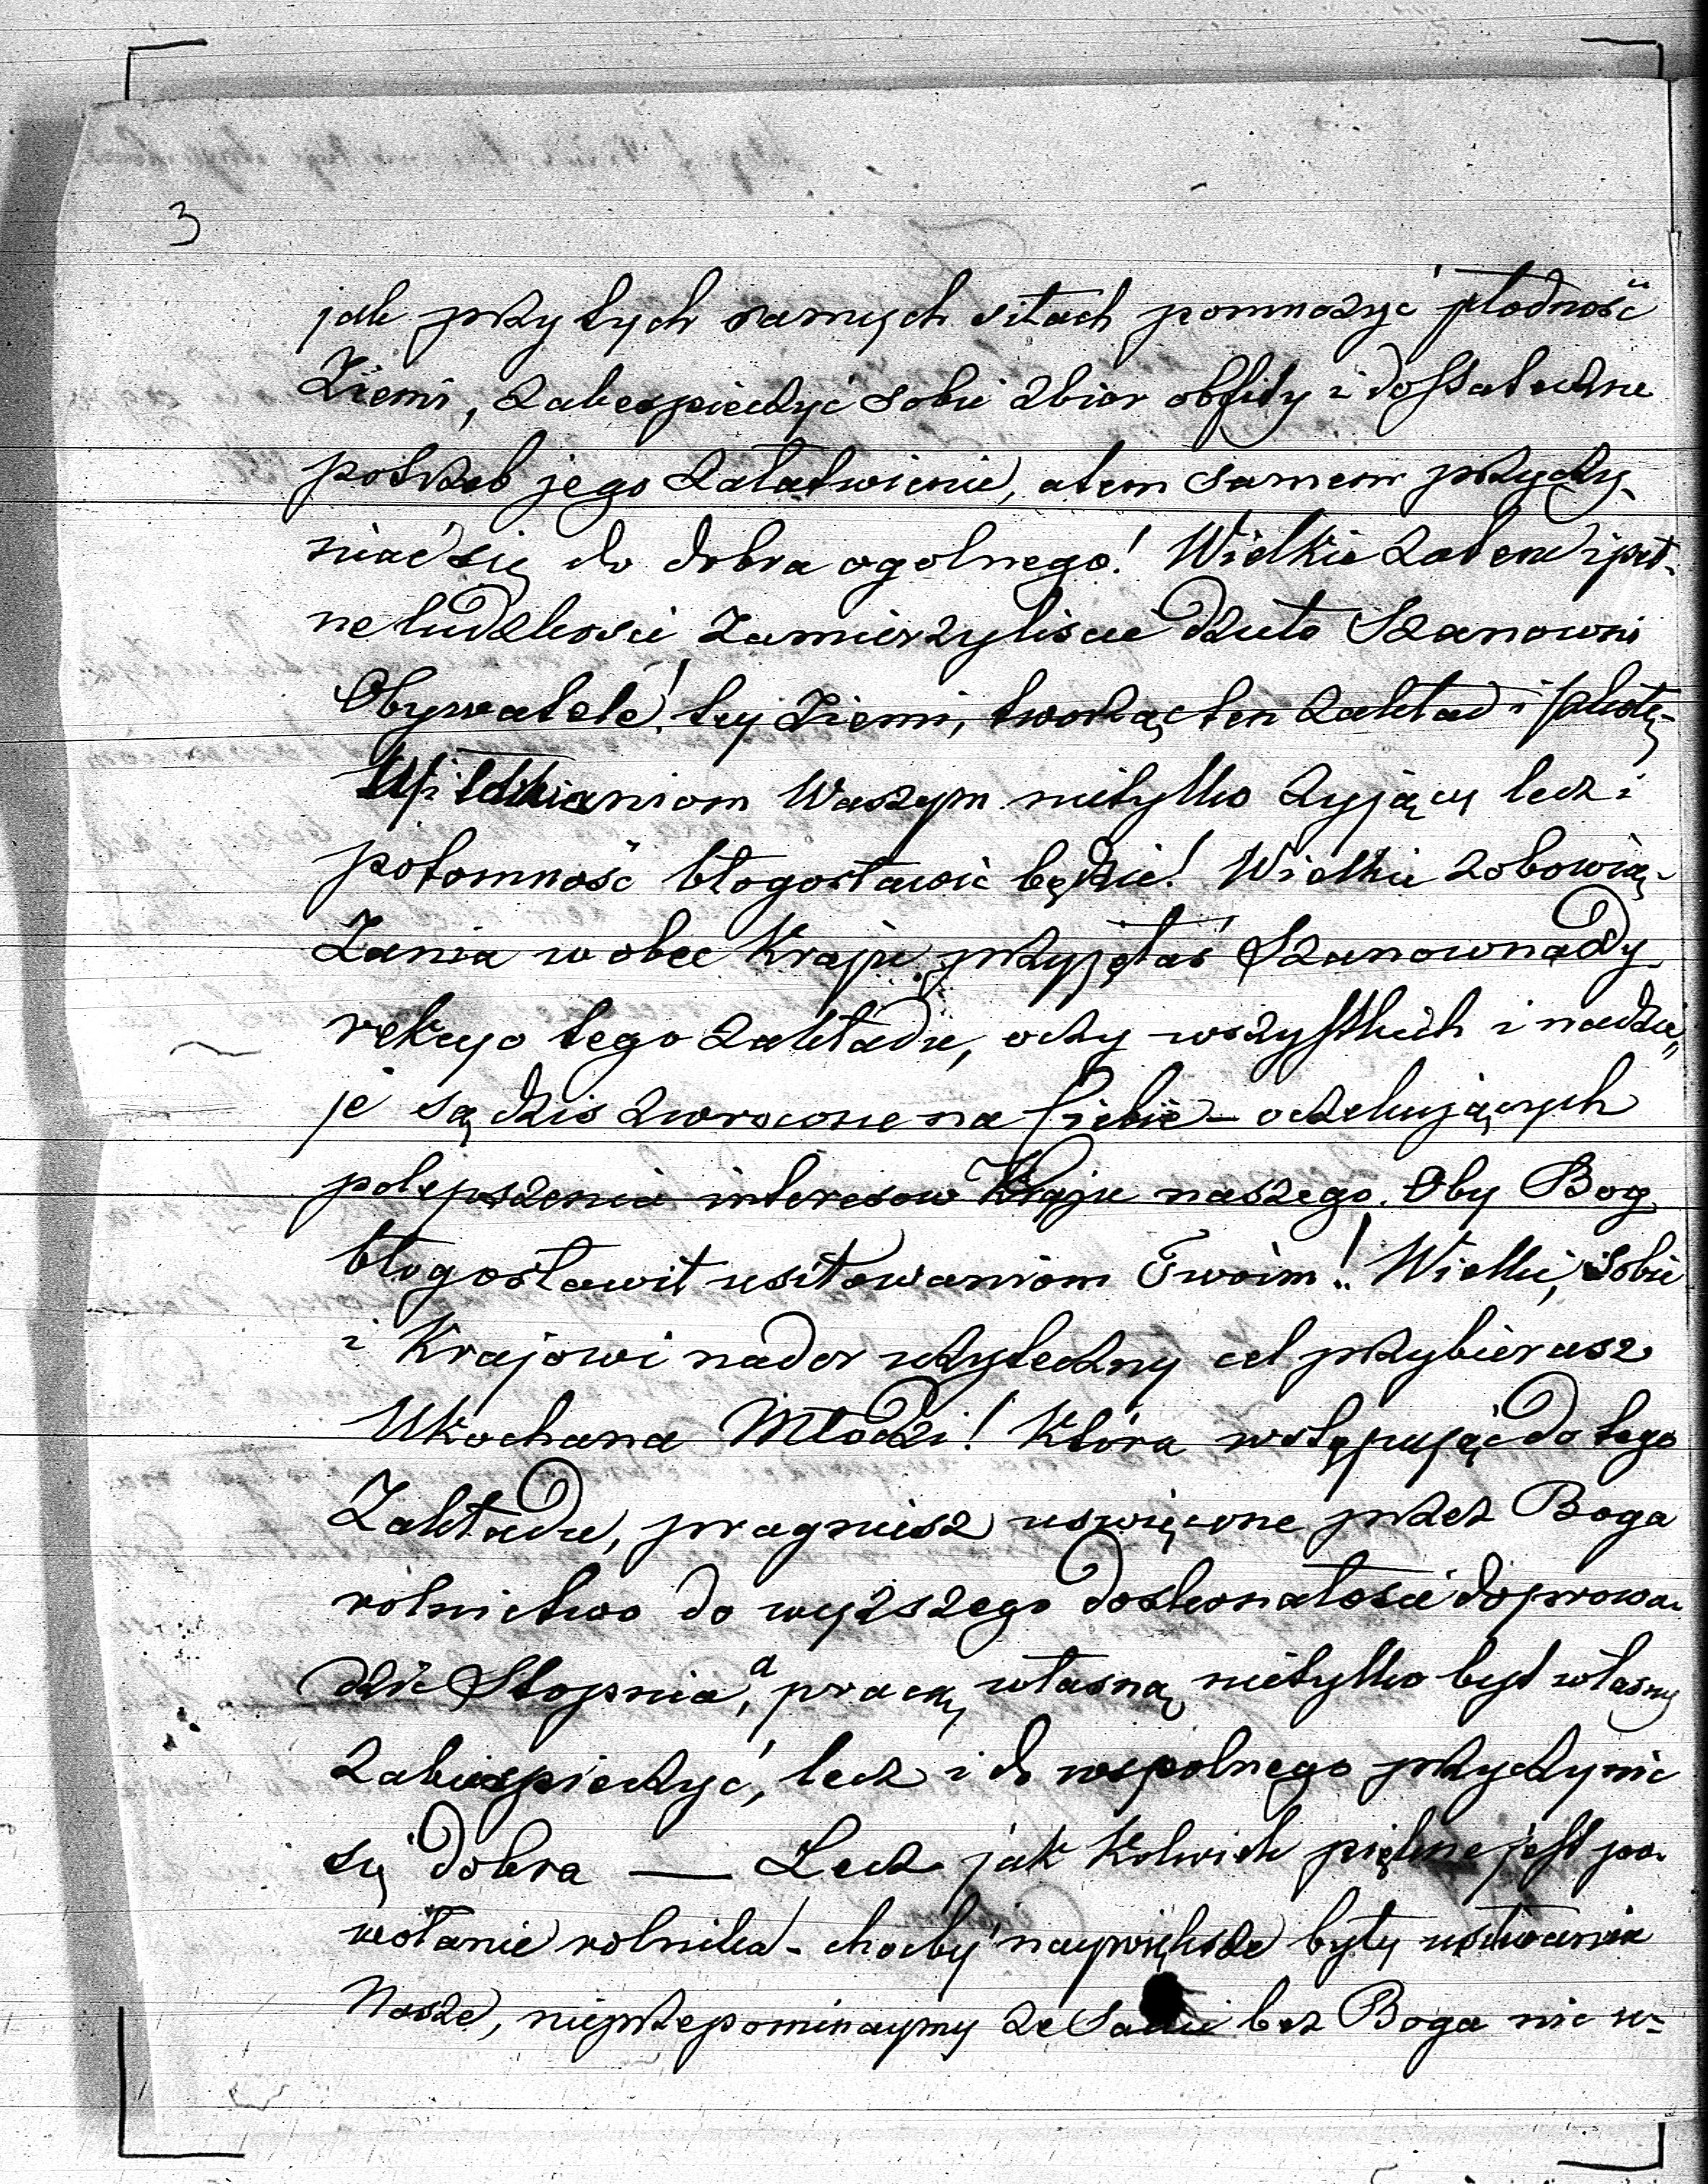 3
jak przy tych samych siłach pomnożyć płodność
Ziemi, zabespieczyć sobie zbior obfity i dostateczne
potrzeb jego załatwienie, atem samem przyczy-
niać się do dobra ogolnego! Wielkie zatem i peł-
ne ludzkości zamierzyliscie dzieło Szanowni
Obywatele! tey Ziemi, tworząc ten zakład i
Waszym nietylko żyjący lecz i
potomność błogosławić będzie! Wielkie zobowią-
Zania wobec Kraju przyjęłaś Szanowna Dy-
rekcyo tego zakładu, oczy wszystkich i nadzie„
je są dzis zwrocone na Ciebie – oczekujących
polepszenia interesow Kraju naszego. Oby Bog
błogosławił usiłowaniom Twoim!! Wielki, Sobie
i Krajowi nader użyteczny cel przybierasz
Ukochana Młodzi! Która wstępując do tego
Zakładu, pragniesz uswięcone przez Boga
rolnictwo do wyższego doskonałości doprowa-
dzić Stopnia, a pracą własną nietylko byt własny
zabiespieczyć, lecz i do wspolnego przyczynic
się dobra — Lecz jak Kolwiek piękne jest po-
wołanie rolnika – choćby naywiększe były usiłowania
Nasze, nieprzepominaymy ze bez Boga nic w-